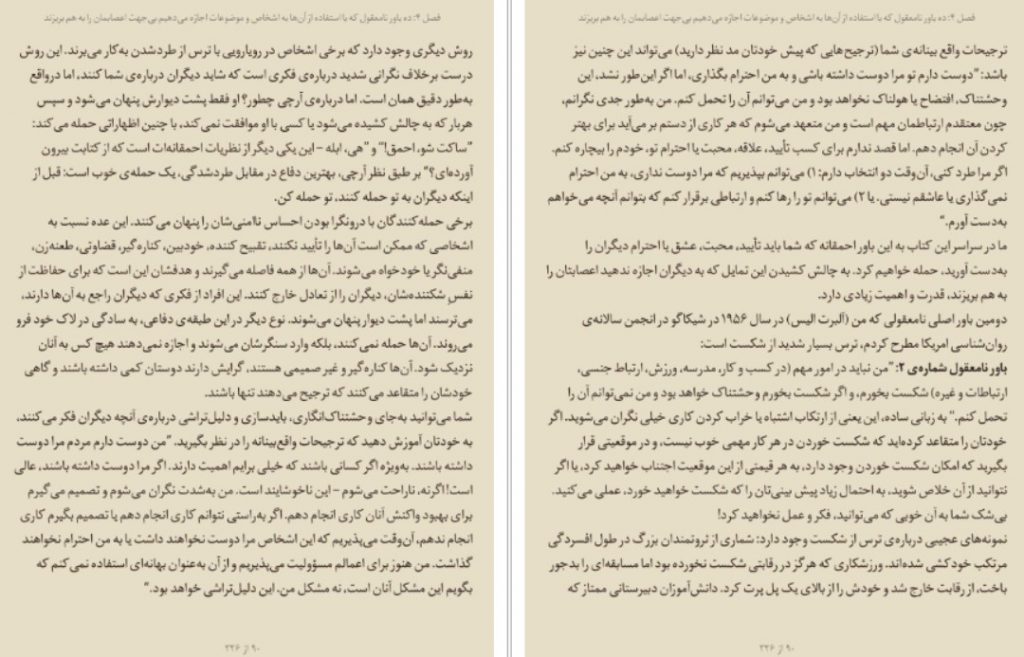 فصل ۴: ده باور نامعقول که با استفاده از آن‌ها به اشخاص و موضوعات اجازه می‌دهیم بی‌جهت اعصابمان را به هم بریزند
روش دیگری وجود دارد که برخی اشخاص در رویارویی با ترس از طردشدن به‌کار می‌برند. این روش
درست برخلاف نگرانی شدید درباره‌ی فکری است که شاید دیگران درباره‌ی شما کنند، اما درواقع
به‌طور دقیق همان است. اما درباره‌ی آرچی چطور؟ او فقط پشت دیوارش پنهان می‌شود و سپس
هربار که به چالش کشیده می‌شود یا کسی با او موافقت نمی‌کند، با چنین اظهاراتی حمله می‌کند:
"ساکت شو، احمق!" و "هی، ابله - این یکی دیگر از نظریات احمقانه‌ات است که از کتابت بیرون
آورده‌ای؟" بر طبق نظر آرچی، بهترین دفاع در مقابل طردشدگی، یک حمله‌ی خوب است: قبل از
اینکه دیگران به تو حمله کنند، تو حمله کن.
برخی حمله‌کنندگان با درونگرا بودن احساس ناامنی‌شان را پنهان می‌کنند. این عده نسبت به
اشخاصی که ممکن است آن‌ها را تأیید نکنند، تقبیح کننده، خودبین، کناره‌گیر، قضاوتی، طعنه‌زن،
منفی‌نگر یا خودخواه می‌شوند. آن‌ها از همه فاصله می‌گیرند و هدفشان این است که برای حفاظت از
نفسِ شکننده‌شان، دیگران را از تعادل خارج کنند. این افراد از فکری که دیگران راجع به آن‌ها دارند،
می‌ترسند اما پشت دیوار پنهان می‌شوند. نوع دیگر در این طبقه‌ی دفاعی، به سادگی در لاک خود فرو
می‌روند. آن‌ها حمله نمی‌کنند، بلکه وارد سنگرشان می‌شوند و اجازه نمی‌دهند هیچ کس به آنان
نزدیک شود. آن‌ها کناره‌گیر و غیر صمیمی هستند، گرایش دارند دوستان کمی داشته باشند و گاهی
خودشان را متقاعد می‌کنند که ترجیح می‌دهند تنها باشند.
شما می‌توانید به‌جای وحشتناک‌انگاری، بایدسازی و دلیل‌تراشی درباره‌ی آنچه دیگران فکر می‌کنند،
به خودتان آموزش دهید که ترجیحات واقع‌بینانه را در نظر بگیرید. "من دوست دارم مردم مرا دوست
داشته باشند. به‌ویژه اگر کسانی باشند که خیلی برایم اهمیت دارند. اگر مرا دوست داشته باشند، عالی
است! اگرنه، ناراحت می‌شوم - این ناخوشایند است. من به‌شدت نگران می‌شوم و تصمیم می‌گیرم
برای بهبود واکنش آنان کاری انجام دهم. اگر به‌راستی نتوانم کاری انجام دهم یا تصمیم بگیرم کاری
انجام ندهم، آن‌وقت می‌پذیریم که این اشخاص مرا دوست نخواهند داشت یا به من احترام نخواهند
گذاشت. من هنوز برای اعمالم مسؤولیت می‌پذیریم و از آن به‌عنوان بهانه‌ای استفاده نمی‌کنم که
بگویم این مشکل آنان است، نه مشکل من. این دلیل‌تراشی خواهد بود."
۹۰ از ۲۲۶
فصل ۴: ده باور نامعقول که با استفاده از آن‌ها به اشخاص و موضوعات اجازه می‌دهیم بی‌جهت اعصابمان را به هم بریزند
ترجیحات واقع بینانه‌ی شما (ترجیح‌هایی که پیش خودتان مد نظر دارید) می‌تواند این چنین نیز
باشد: "دوست دارم تو مرا دوست داشته باشی و به من احترام بگذاری، اما اگر این‌طور نشد، این
وحشتناک، افتضاح یا هولناک نخواهد بود و من می‌توانم آن را تحمل کنم. من به‌طور جدی نگرانم،
چون معتقدم ارتباطمان مهم است و من متعهد می‌شوم که هر کاری از دستم بر می‌آید برای بهتر
کردن آن انجام دهم. اما قصد ندارم برای کسب تأیید، علاقه، محبت یا احترام تو، خودم را بیچاره کنم.
اگر مرا طرد کنی، آن‌وقت دو انتخاب دارم: ۱) می‌توانم بپذیریم که مرا دوست نداری، به من احترام
نمی‌گذاری یا عاشقم نیستی. یا ۲) می‌توانم تو را رها کنم و ارتباطی برقرار کنم که بتوانم آنچه می‌خواهم
به‌دست آورم."
ما در سراسر این کتاب به این باور احمقانه که شما باید تأیید، محبت، عشق یا احترام دیگران را
به‌دست آورید، حمله خواهیم کرد. به چالش کشیدن این تمایل که به دیگران اجازه ندهید اعصابتان را
به هم بریزند، قدرت و اهمیت زیادی دارد.
دومین باور اصلی نامعقولی که من (آلبرت الیس) در سال ۱۹۵۶ در شیکاگو در انجمن سالانه‌ی
روان‌شناسی امریکا مطرح کردم، ترس بسیار شدید از شکست است:
باور نامعقول شماره‌ی ۲: "من نباید در امور مهم (در کسب و کار، مدرسه، ورزش، ارتباط جنسی،
ارتباطات و غیره) شکست بخورم، و اگر شکست بخورم وحشتناک خواهد بود و من نمی‌توانم آن را
تحمل کنم." به زبانی ساده، این یعنی از ارتکاب اشتباه یا خراب کردن کاری خیلی نگران می‌شوید. اگر
خودتان را متقاعد کرده‌اید که شکست خوردن در هر کار مهمی خوب نیست، و در موقعیتی قرار
بگیرید که امکان شکست خوردن وجود دارد، به هر قیمتی از این موقعیت اجتناب خواهید کرد، یا اگر
نتوانید از آن خلاص شوید، به احتمال زیاد پیش بینی‌تان را که شکست خواهید خورد، عملی می‌کنید.
بی‌شک شما به آن خوبی که می‌توانید، فکر و عمل نخواهید کرد!
نمونه‌های عجیبی درباره‌ی ترس از شکست وجود دارد: شماری از ثروتمندان بزرگ در طول افسردگی
مرتکب خودکشی شده‌اند. ورزشکاری که هرگز در رقابتی شکست نخورده بود اما مسابقه‌ای را بدجور
باخت، از رقابت خارج شد و خودش را از بالای یک پل پرت کرد. دانش‌آموزان دبیرستانی ممتاز که
۹۰ از ۲۲۶